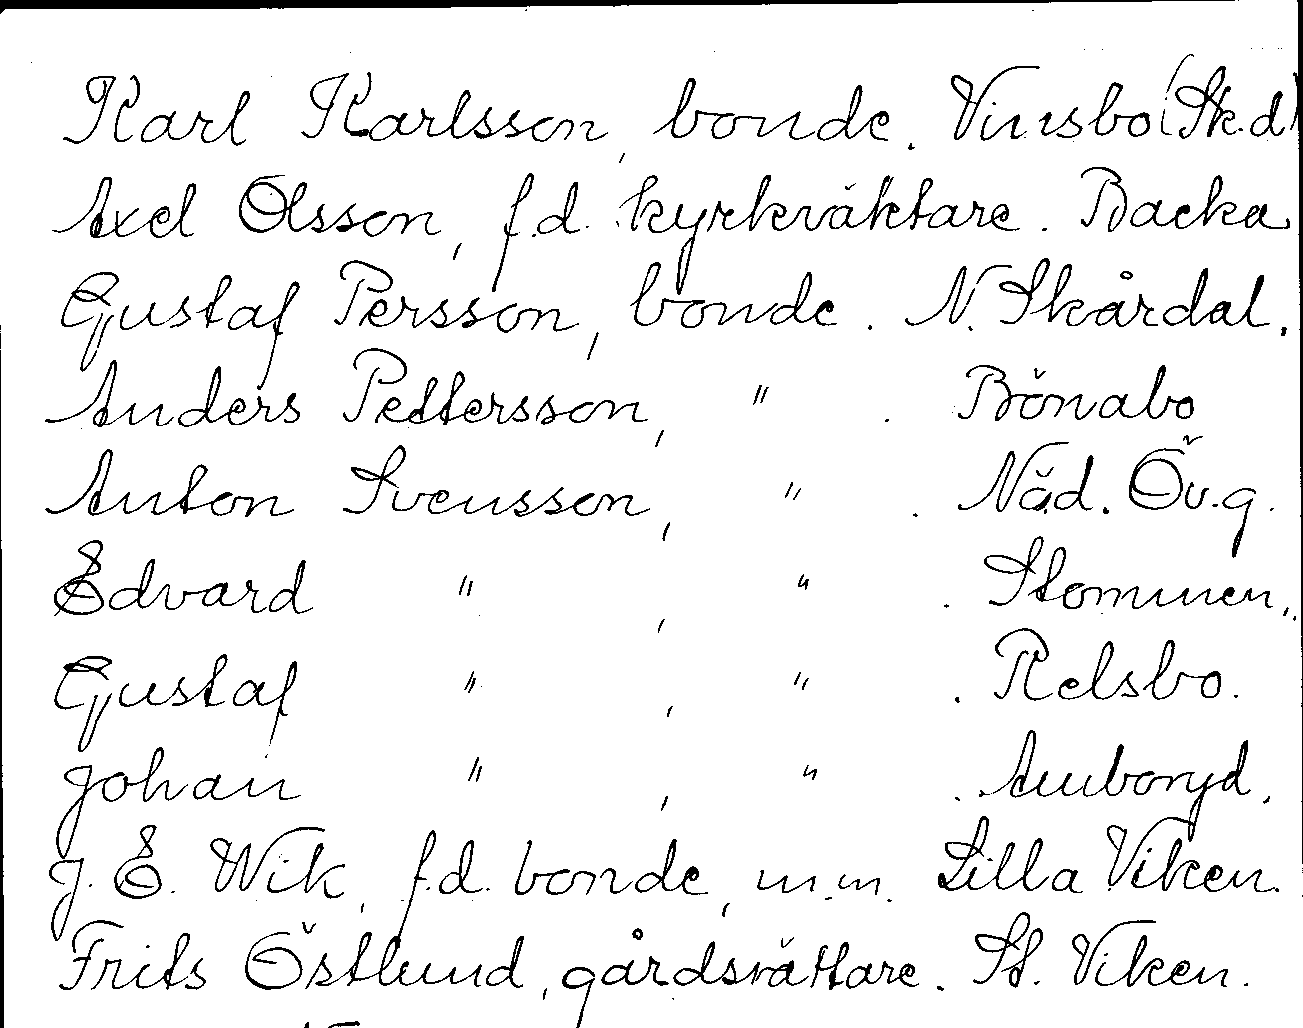 Karl Karlsson, bonde. Vinsbo (Sk.d)
Axel Olsson, f.d. kyrkväktare. Backa
Gustaf Persson, bonde. N. Skårdal.
Anders Pettersson, " . Bönabo
Anton Svensson, " . Näd. Öv.g.
Edvard " , " . Stommen.
Gustaf " , " . Relsbo.
Johan " , " . Amboryd.
J. E. Wik, f.d. bonde, m.m. Lilla Viken.
Frits Östlund, gårdsrättare. St. Viken.